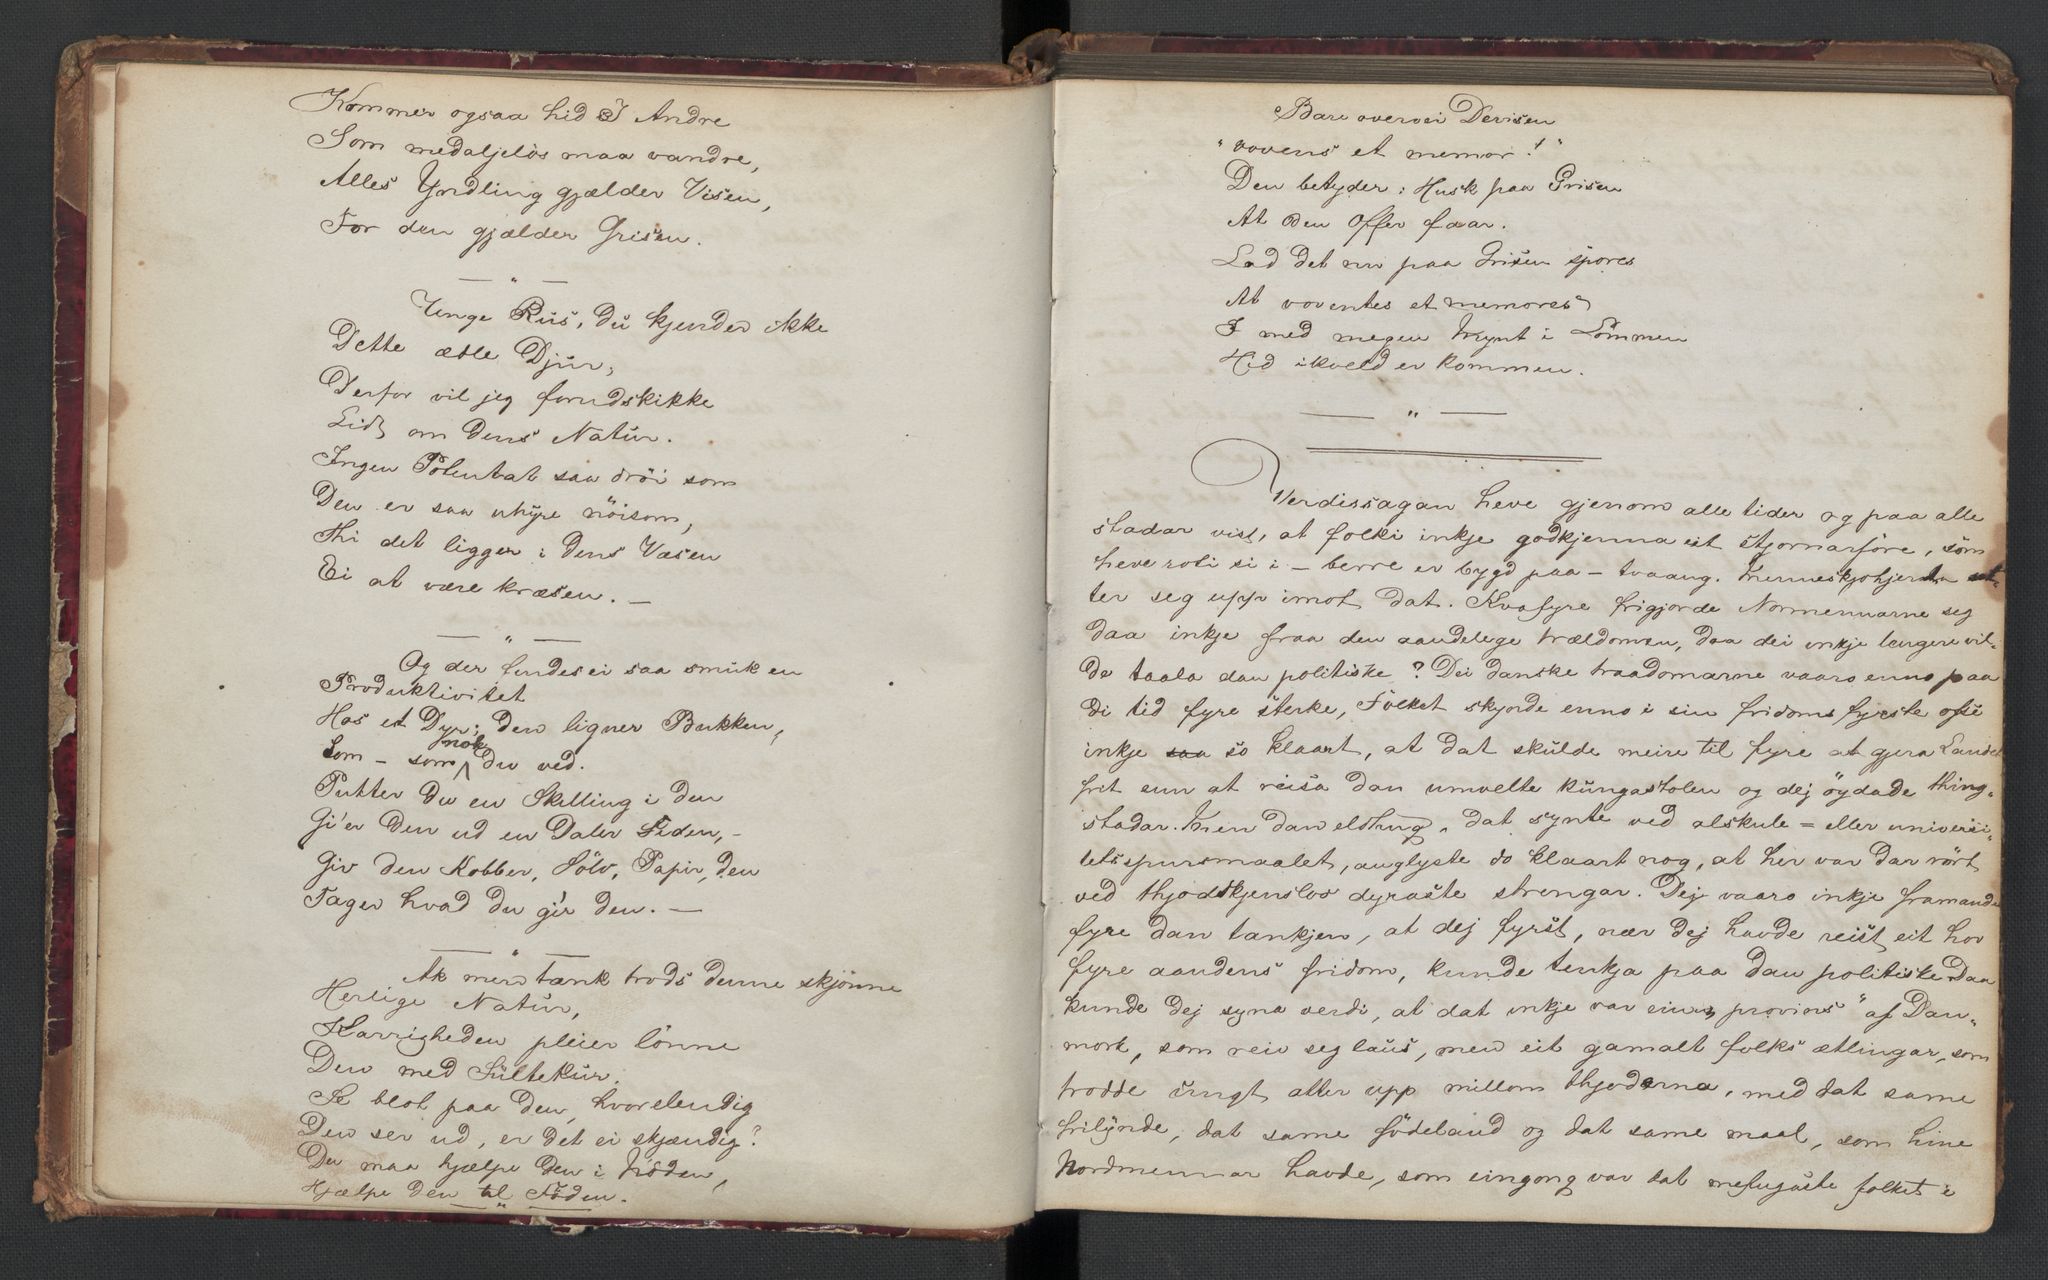 Kommer ogsaa hid I Andre
Som medaljeløs maa vandre,
Alles Yndling gjælder Visen,
For den gjælder Grisen.
— " —
Unge Rus, du kjender ikke
Dette ædle Djur,
Derfor vil jeg forudskikke
Lidt om dens Natur.
Ingen Potentat saa drøi som
Den er saa uhyre nøisom,
Thi det ligger i dens Væsen
Ei at være kræsen. —
— " —
Og der findes ei saa smuk en
Produktivitet
Hos et Dyr; den ligner Bukken,
Som – som nok du ved.
Putter du en Skilling i den
Gi'er den ud en Daler siden, –
Giv den Kobber, Sölv, Papir, den
Tager hvad du gi'r den. —
— " —
Ak men tænk trods denne skjønne
Herlige Natur,
Karrigheden pleier lønne
Den med Sultekur.
Se blot paa den, hvor elendig
Den ser ud, er det ei skjændig?
Du maa hjælpe den i Nöden,
Hjælpe den til Föden.
— " —
Bare overvei Devisen
"vovens et memor!"
Den betyder: Husk paa Grisen
At den Offer faar.
Lad det nu paa Grisen spores
At voventes et memores
I med megen Mynt i Lommen
Hid ikveld er kommen.
— " —
Verdissagan heve gjenom alle tider og paa alle
stadar vist, at folki inkje godkjenna eit stjornarföre, som
heve roti si i – berre er bygd paa – tvaang. Menneskjohjerta set-
ter seg upp imot dat. Kvafyre frigjorde Normennarne seg
daa inkje fraa den aandelege trældomen, daa dei inkje lengere vil-
de taala dan politiske? Dei danske traadomarne vaaro enno paa
di tid fyre sterke, Folket skjorde enno i sin fridoms fyrste
inkje so klaart, at dat skulde meire til fyre at gjera Landet
frit enn at reisa dan umvelte kungastolen og dej öydade thing-
stadar. Men dan elsthug, dat synte ved alskule= eller universi-
tetsspursmaalet, auglyste do klaart nog, at her var dar rört
ved thjodskjenslos dyraste strengar. Dej vaaro inkje framande
fyre dan tankjen, at dej fyrst, nær dej havde reist eit hov
fyre aandens fridom, kunde tenkja paa dan politiske. Daa
kunde dej syna verdi, at dat inkje var ein „provins" af Dan-
mork, som reiv seg laus, men eit gamalt folks ætlingar, som
trodde ungt atter upp millom thjoderna, med dat same
frilynde, dat same fødeland og dat same maal, som hine
Nordmennar havde, som eingong var dat megugaste folket i